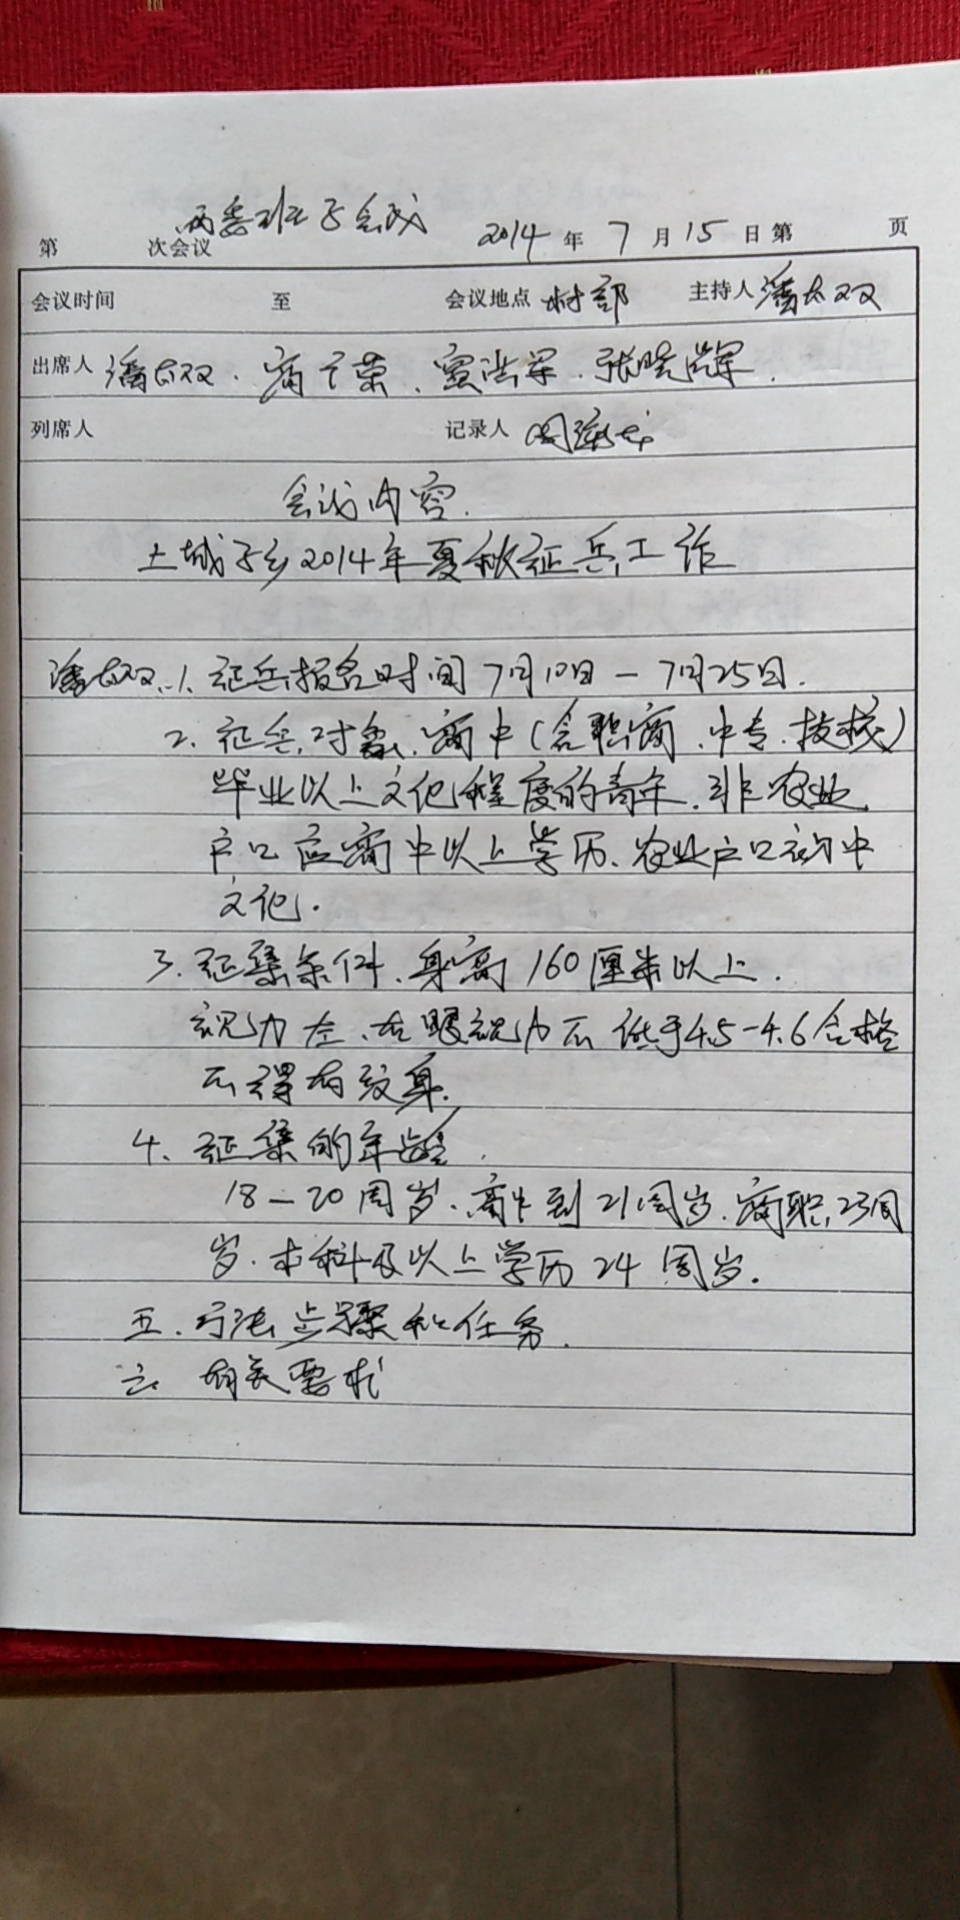 两委班子会议
第 次会议 2014 年 7 月 15 日 第 页
会议时间 至 会议地点 村部 主持人 潘太双
出席人 潘太双、高广荣、张晓辉
列席人 记录人 周
会议内容
土城子乡2014年夏秋征兵工作
潘太双:1、征兵报名时间7月10日—7月25日.
2、征兵对象、高中(含职高、中专、技校)
毕业以上文化程度的青年、非农业
户口应高中以上学历、农业户口初中
文化.
3、征集条件、身高160厘米以上.
视力左、右眼视力不低于4.5-4.6合格
不得有纹身.
4、征集的年龄.
18—20周岁、高中到21周岁、高职23周
岁、本科及以上学历24周岁.
五、方法步骤和任务.
六 有关要求